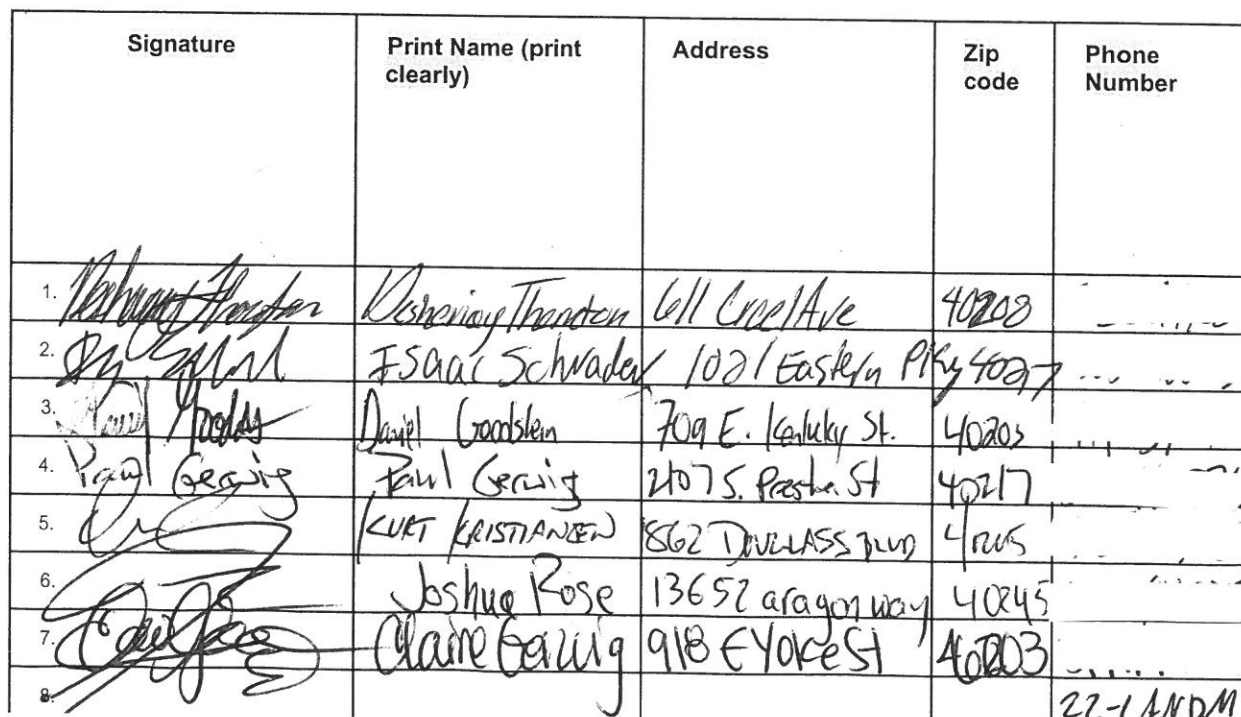 Signature Print Name (print clearly) Address Zip code Phone Number
1. Thornton 611 Creel Ave 40208
2. Isaac Schrader 1021 Eastern Pkwy 40217
3. Daniel Goodstein 709 E. Kentucky St. 40203
4. Paul Gerwig Paul Gerwig 2107 S. Preston St 40217
5. KURT KRISTIANSEN 862 DOUGLASS BLVD 40205
6. Joshua Rose 13652 aragon way 40245
7. Claire Gerwig 918 E Yoke St 40203
8. 22-1 ANDM